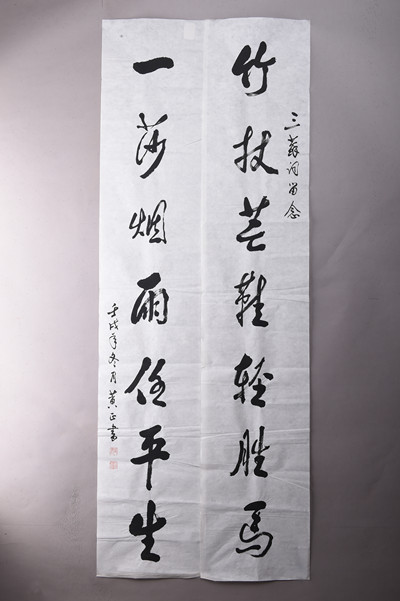 三蘇祠留念
竹杖芒鞋轻胜馬
一莎烟雨任平生
壬戌年冬月黄正書